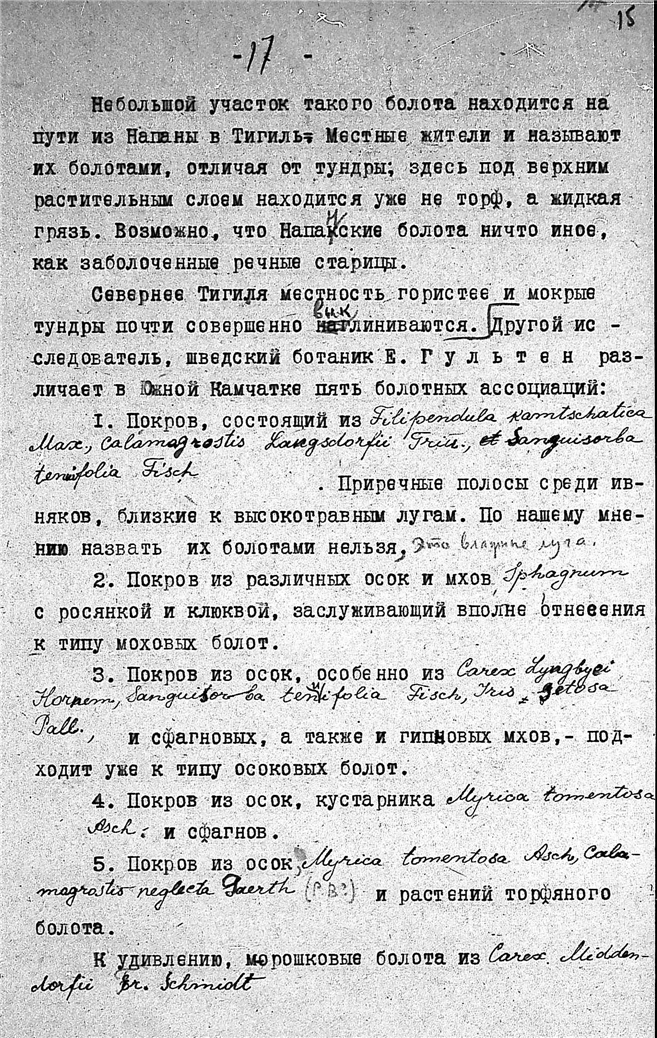 15
-17 -
Небольшой участок такого болота находится на
пути из Напаны в Тигиль. Местные жители и называют
их болотами, отличая от тундры; здесь под верхним
растительным слоем находится уже не торф, а жидкая
грязь. Возможно, что Напанские болота ничто иное,
как заболоченные речные старицы.
Севернее Тигиля местность гористее и мокрые
тундры почти совершенно выклиниваются. Другой ис -
следователь, шведский ботаник Е. Гультен раз-
личает в Южной Камчатке пять болотных ассоциаций:
I. Покров, состоящий из Filipendula kamtschatica
Max., Calamagrostis Langsdorfii Trin., et Sanguisorba
tenuifolia Fisch
. Приречные полосы среди ив-
няков, близкие к высокотравным лугам. По нашему мне-
нию назвать их болотами нельзя, это влажные луга.
2. Покров из различных осок и мхов Sphagnum
с росянкой и клюквой, заслуживающий вполне отнесения
к типу моховых болот.
3. Покров из осок, особенно из Carex Lyngbyei
Hornem, Sanguisorba tenuifolia Fisch, Iris setosa
Pall.,
и сфагновых, а также и гипновых мхов,- под-
ходит уже к типу осоковых болот.
4. Покров из осок, кустарника Myrica tomentosa
Asch. и сфагнов.
5. Покров из осок, Myrica tomentosa Asch, Cala-
magrostis neglecta Gaerth (P.B?) и растений торфяного
болота.
К удивлению, морошковые болота из Carex Midden-
dorfii Fr. Schmidt